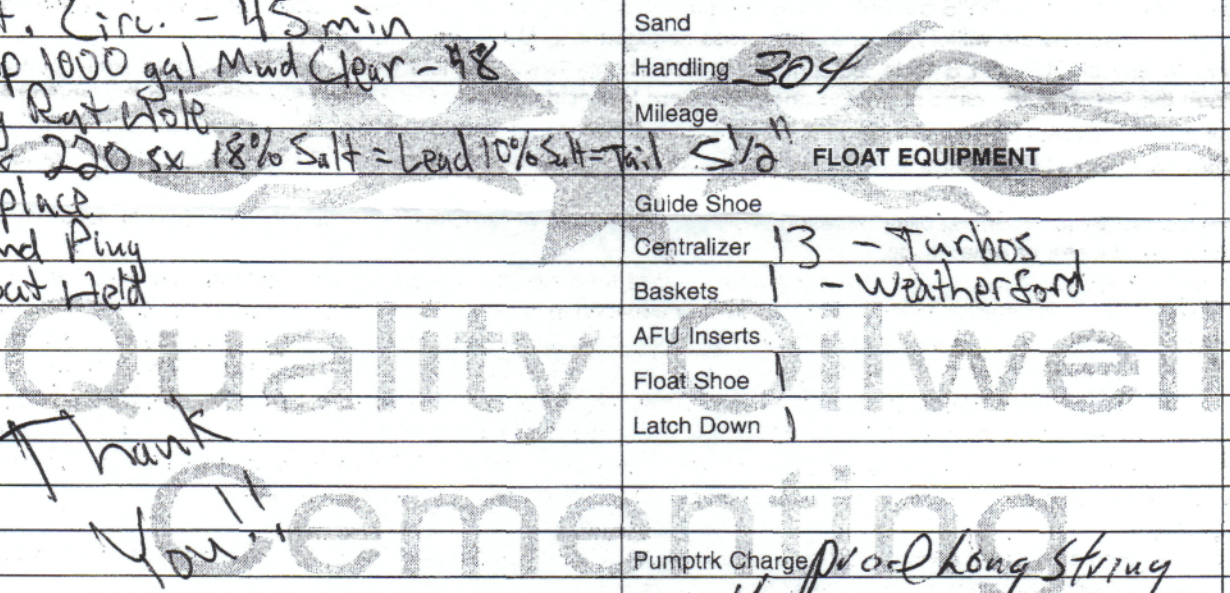 t. Circ. - 45min
p 1000 gal Mud Clear - 48
Rat Hole
220 sx 18% Salt = Lead 10% Salt = Tail
place
nd Plug
oat Held
Thank
You!!
Sand
Handling 304
Mileage
5 1/2" FLOAT EQUIPMENT
Guide Shoe
Centralizer 13 - Turbos
Baskets 1 - Weatherford
AFU Inserts
Float Shoe 1
Latch Down 1
Pumptrk Charge prod Long String
Quality Oilwell
Cementing